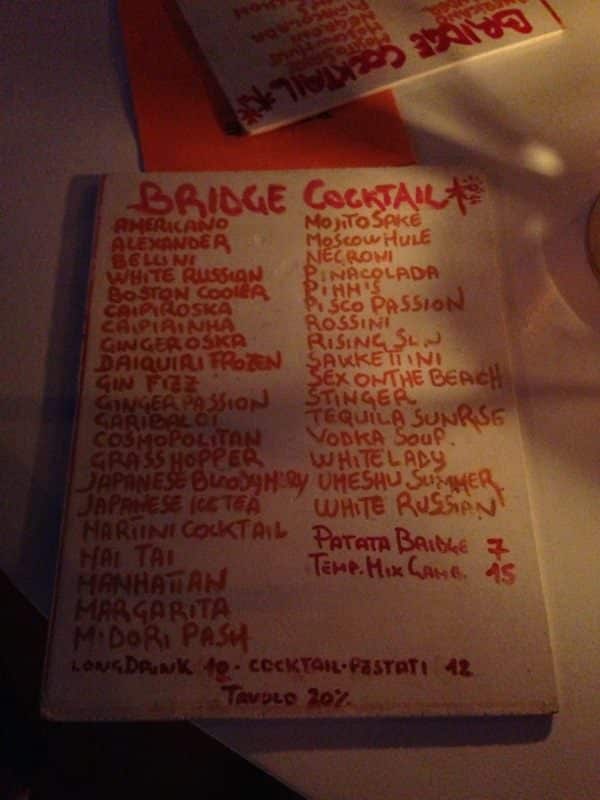 BRIDGE COCKTAIL
BRIDGE COCKTAIL*
AMERICANO
ALEXANDER
BELLINI
WHITE RUSSIAN
BOSTON COOLER
CAIPIROSKA
CAIPIRINHA
GINGEROSKA
DAIQUIRI FROZEN
GIN FIZZ
GINGER PASSION
GARIBALDI
COSMOPOLITAN
GRASSHOPPER
JAPANESE BLOODY MARY
JAPANESE ICE TEA
MARTINI COCKTAIL
MAI TAI
MANHATTAN
MARGARITA
MIDORI PASH
MOJITO SAKE
MOSCOW HULE
NEGRONI
PINACOLADA
PIMM'S
PISCO PASSION
ROSSINI
RISING SUN
SAKKETINI
SEX ON THE BEACH
STINGER
TEQUILA SUNRISE
VODKA SOUR
WHITE LADY
UMESHU SUMMER
WHITE RUSSIAN
PATATA BRIDGE 7
TEMP. MIX GAMB. 15
LONG DRINK 10 · COCKTAIL · PESTATI 12
TAVOLO 20%